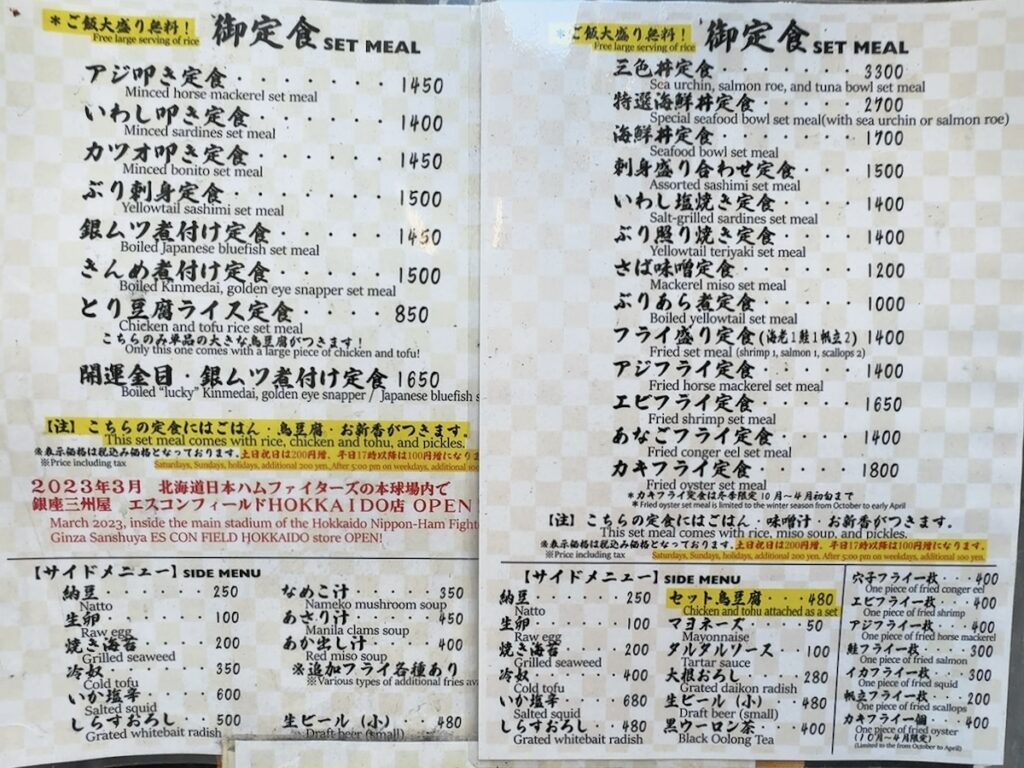 ＊ご飯大盛り無料！
Free large serving of rice
御定食 SET MEAL
アジ叩き定食・・・・・・・1450
Minced horse mackerel set meal
いわし叩き定食・・・・・・1400
Minced sardines set meal
カツオ叩き定食・・・・・・1450
Minced bonito set meal
ぶり刺身定食・・・・・・・1500
Yellowtail sashimi set meal
銀ムツ煮付け定食・・・・・1450
Boiled Japanese bluefish set meal
きんめ煮付け定食・・・・・1500
Boiled Kinmedai, golden eye snapper set meal
とり豆腐ライス定食・・・・850
Chicken and tofu rice set meal
こちらのみ単品の大きな鳥豆腐がつきます！
Only this one comes with a large piece of chicken and tofu!
開運金目・銀ムツ煮付け定食 1650
Boiled "lucky" Kinmedai, golden eye snapper / Japanese bluefish s
【注】こちらの定食にはごはん・鳥豆腐・お新香がつきます。
This set meal comes with rice, chicken and tohu, and pickles.
※表示価格は税込み価格となっております。土日祝日は200円増、平日17時以降は100円増になりま
※Price including tax Saturdays, Sundays, holidays, additional 200 yen, After 5:00 pm on weekdays, additional 100
2023年3月 北海道日本ハムファイターズの本球場内で
銀座三州屋 エスコンフィールドHOKKAIDO店 OPEN
March 2023, inside the main stadium of the Hokkaido Nippon-Ham Fight
Ginza Sanshuya ES CON FIELD HOKKAIDO store OPEN!
【サイドメニュー】SIDE MENU
納豆・・・・・250
Natto
生卵・・・・・100
Raw egg
焼き海苔・・・200
Grilled seaweed
冷奴・・・・・350
Cold tofu
いか塩辛・・・600
Salted squid
しらすおろし・・500
Grated whitebait radish
なめこ汁・・・・350
Nameko mushroom soup
あさり汁・・・・450
Manila clams soup
あか出し汁・・・400
Red miso soup
※追加フライ各種あり
※Various types of additional fries av
生ビール（小）・・480
Draft beer (small)
＊ご飯大盛り無料！
Free large serving of rice
御定食 SET MEAL
三色丼定食・・・・・・・3300
Sea urchin, salmon roe, and tuna bowl set meal
特選海鮮丼定食・・・・・2700
Special seafood bowl set meal(with sea urchin or salmon roe)
海鮮丼定食・・・・・・・1700
Seafood bowl set meal
刺身盛り合わせ定食・・・1500
Assorted sashimi set meal
いわし塩焼き定食・・・・1400
Salt-grilled sardines set meal
ぶり照り焼き定食・・・・1400
Yellowtail teriyaki set meal
さば味噌定食・・・・・・1200
Mackerel miso set meal
ぶりあら煮定食・・・・・1000
Boiled yellowtail set meal
フライ盛り定食(海老1鮭1帆立2) 1400
Fried set meal (shrimp 1, salmon 1, scallops 2)
アジフライ定食・・・・・1400
Fried horse mackerel set meal
エビフライ定食・・・・・1650
Fried shrimp set meal
あなごフライ定食・・・・1400
Fried conger eel set meal
カキフライ定食・・・・・1800
Fried oyster set meal
＊カキフライ定食は冬季限定10月〜4月初旬まで
＊Fried oyster set meal is limited to the winter season from October to early April
【注】こちらの定食にはごはん・味噌汁・お新香がつきます。
This set meal comes with rice, miso soup, and pickles.
※表示価格は税込み価格となっております。土日祝日は200円増、平日17時以降は100円増になります。
※Price including tax Saturdays, Sundays, holidays, additional 200 yen, After 5:00 pm on weekdays, additional 100 yen.
【サイドメニュー】SIDE MENU
納豆・・・・・250
Natto
生卵・・・・・100
Raw egg
焼き海苔・・・200
Grilled seaweed
冷奴・・・・・400
Cold tofu
いか塩辛・・・680
Salted squid
しらすおろし・・480
Grated whitebait radish
セット鳥豆腐・・・480
Chicken and tohu attached as a set
マヨネーズ・・・・50
Mayonnaise
タルタルソース・・100
Tartar sauce
大根おろし・・・・280
Grated daikon radish
生ビール（小）・・480
Draft beer (small)
黒ウーロン茶・・・400
Black Oolong Tea
穴子フライ一枚・・・400
One piece of fried conger eel
エビフライ一枚・・・400
One piece of fried shrimp
アジフライ一枚・・・400
One piece of fried horse mackerel
鮭フライ一枚・・・・300
One piece of fried salmon
イカフライ一枚・・・300
One piece of fried squid
帆立フライ一枚・・・200
One piece of fried scallops
カキフライ一個・・・400
One piece of fried oyster
（10月〜4月限定）
(Limited to the from October to April)